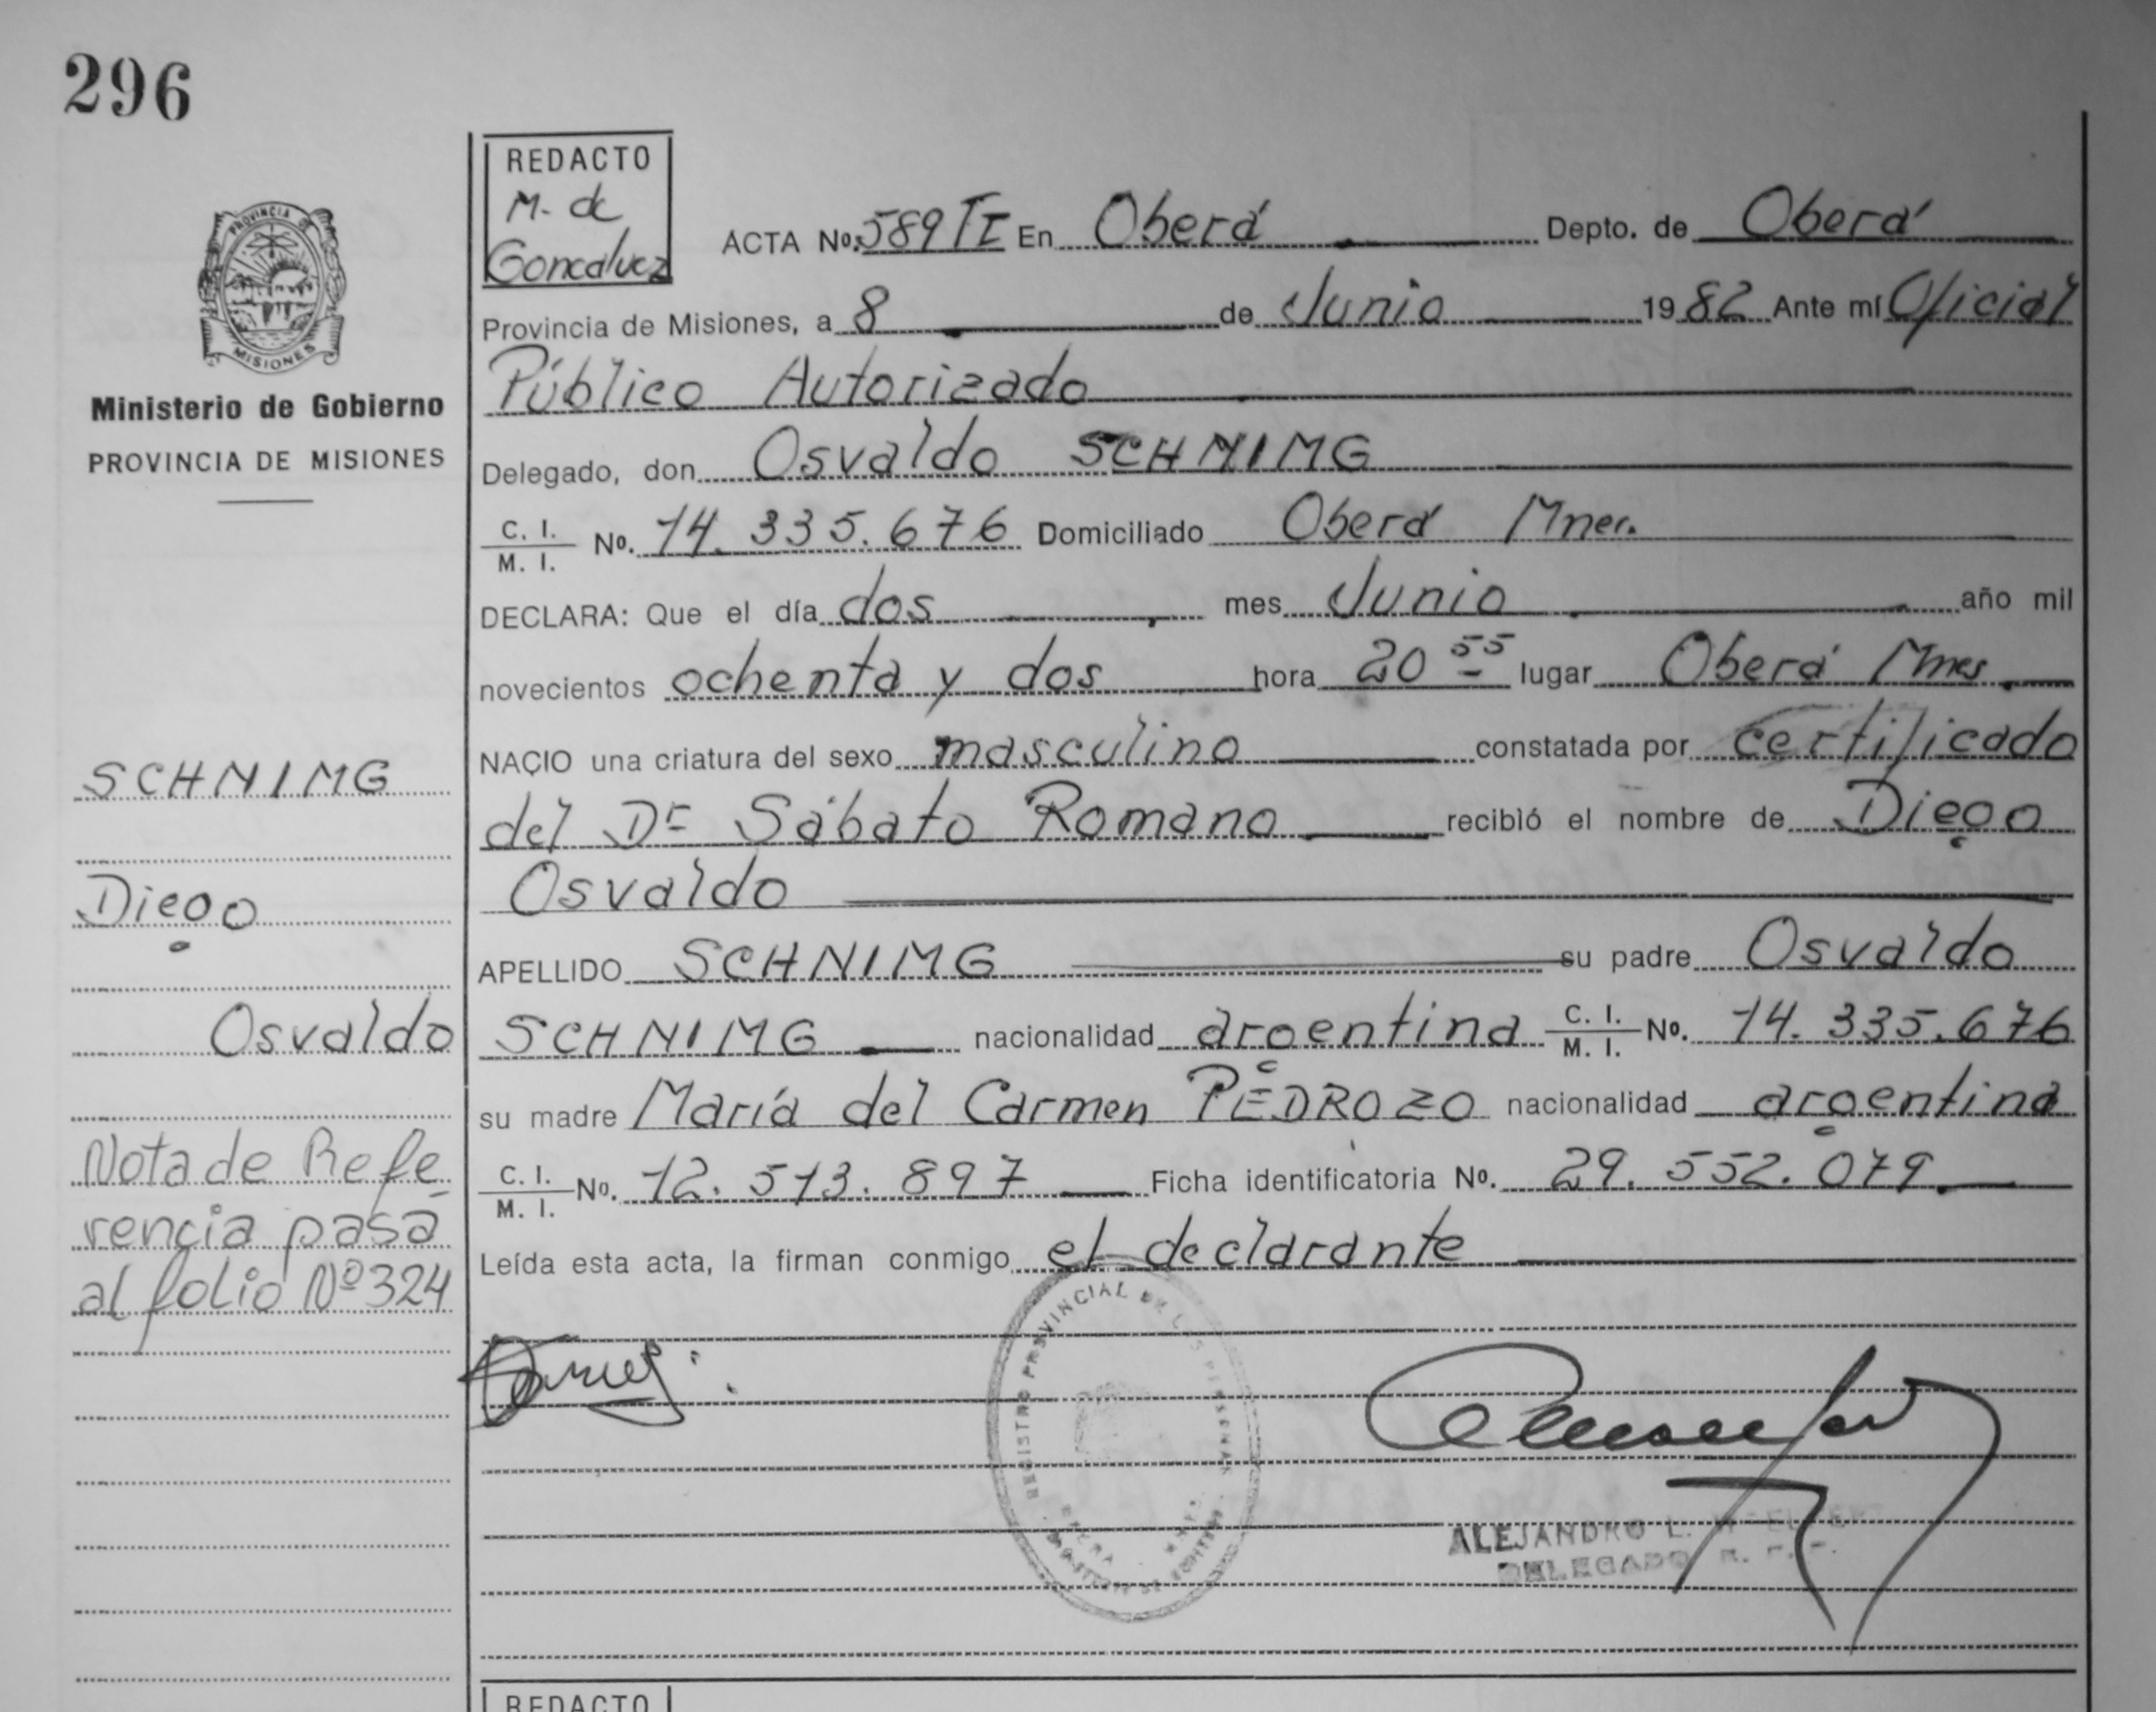 296
REDACTO
M. de
Goncalvez
ACTA No. 589 TI En Oberá Depto. de Oberá
Provincia de Misiones, a 8 de Junio 1982 Ante mí Oficial
Público Autorizado
Delegado, don Osvaldo SCHNIMG
C. I. / M. I. No. 14.335.676 Domiciliado Oberá Mnes.
DECLARA: Que el día dos mes Junio año mil
novecientos ochenta y dos hora 20 55 lugar Oberá Mnes
NACIO una criatura del sexo masculino constatada por certificado
del Dr Sábato Romano recibió el nombre de Diego
Osvaldo
APELLIDO SCHNIMG su padre Osvaldo
SCHNIMG nacionalidad argentina C. I. / M. I. No. 14.335.676
su madre María del Carmen PEDROZO nacionalidad argentina
C. I. / M. I. No. 12.513.897 Ficha identificatoria No. 29.552.079
Leída esta acta, la firman conmigo el declarante
PROVINCIA DE
MISIONES
Ministerio de Gobierno
PROVINCIA DE MISIONES
SCHNIMG
Diego
Osvaldo
Nota de Refe
rencia pasa
al folio Nº 324
REGISTRO PROVINCIAL DE LAS PERSONAS
ALEJANDRO L.
DELEGADO R.
REDACTO